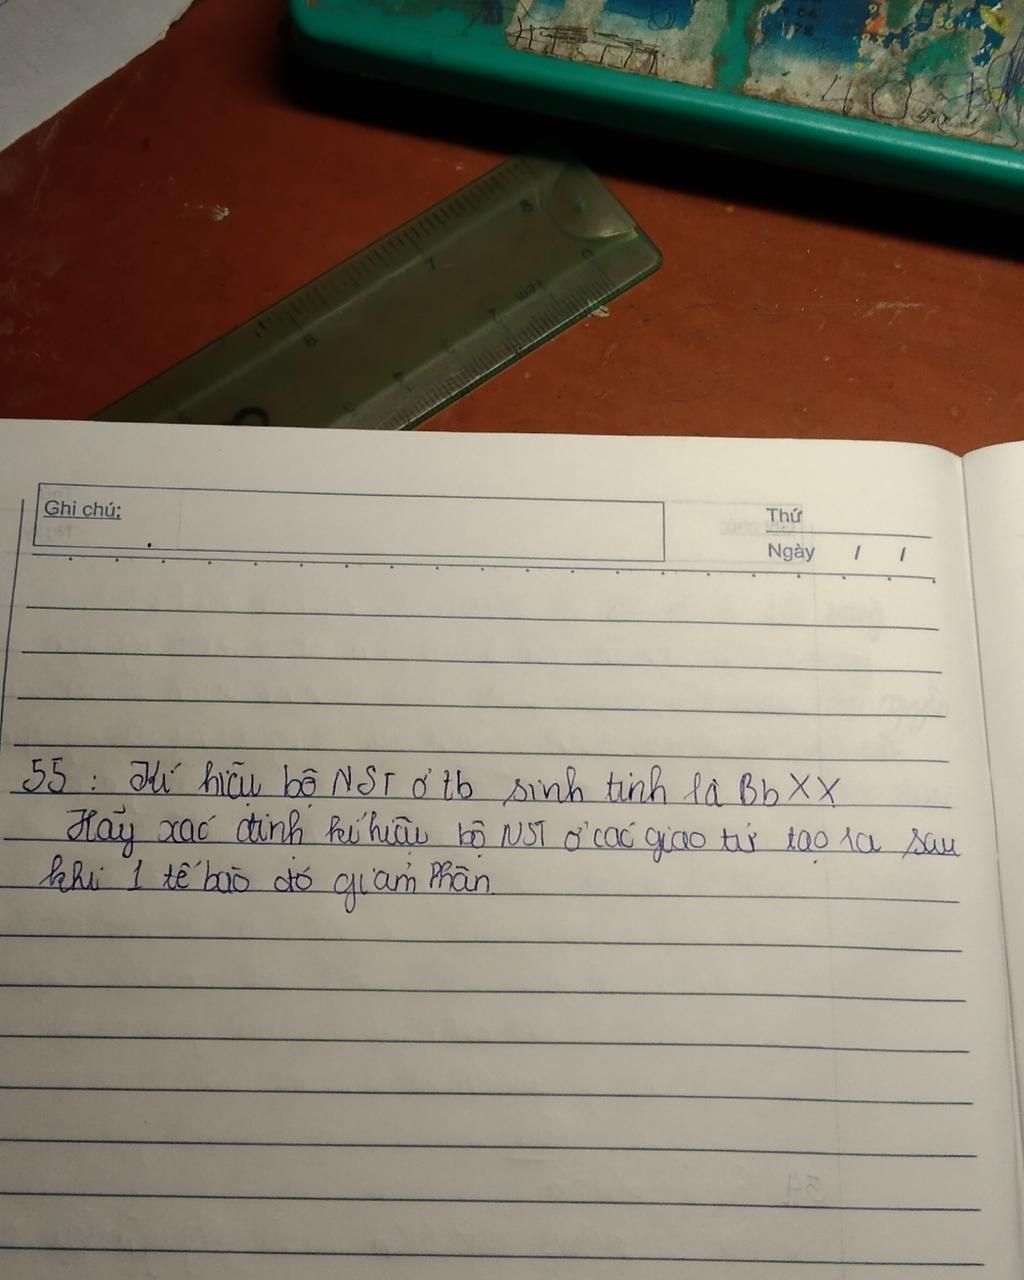 Ghi chú:
Thứ
Ngày / /
55 : Kí hiệu bộ NST ở tb sinh tinh là Bb XX
Hãy xác định kí hiệu bộ NST ở các giao tử tạo ra sau
khi 1 tế bào đó giảm Phân.